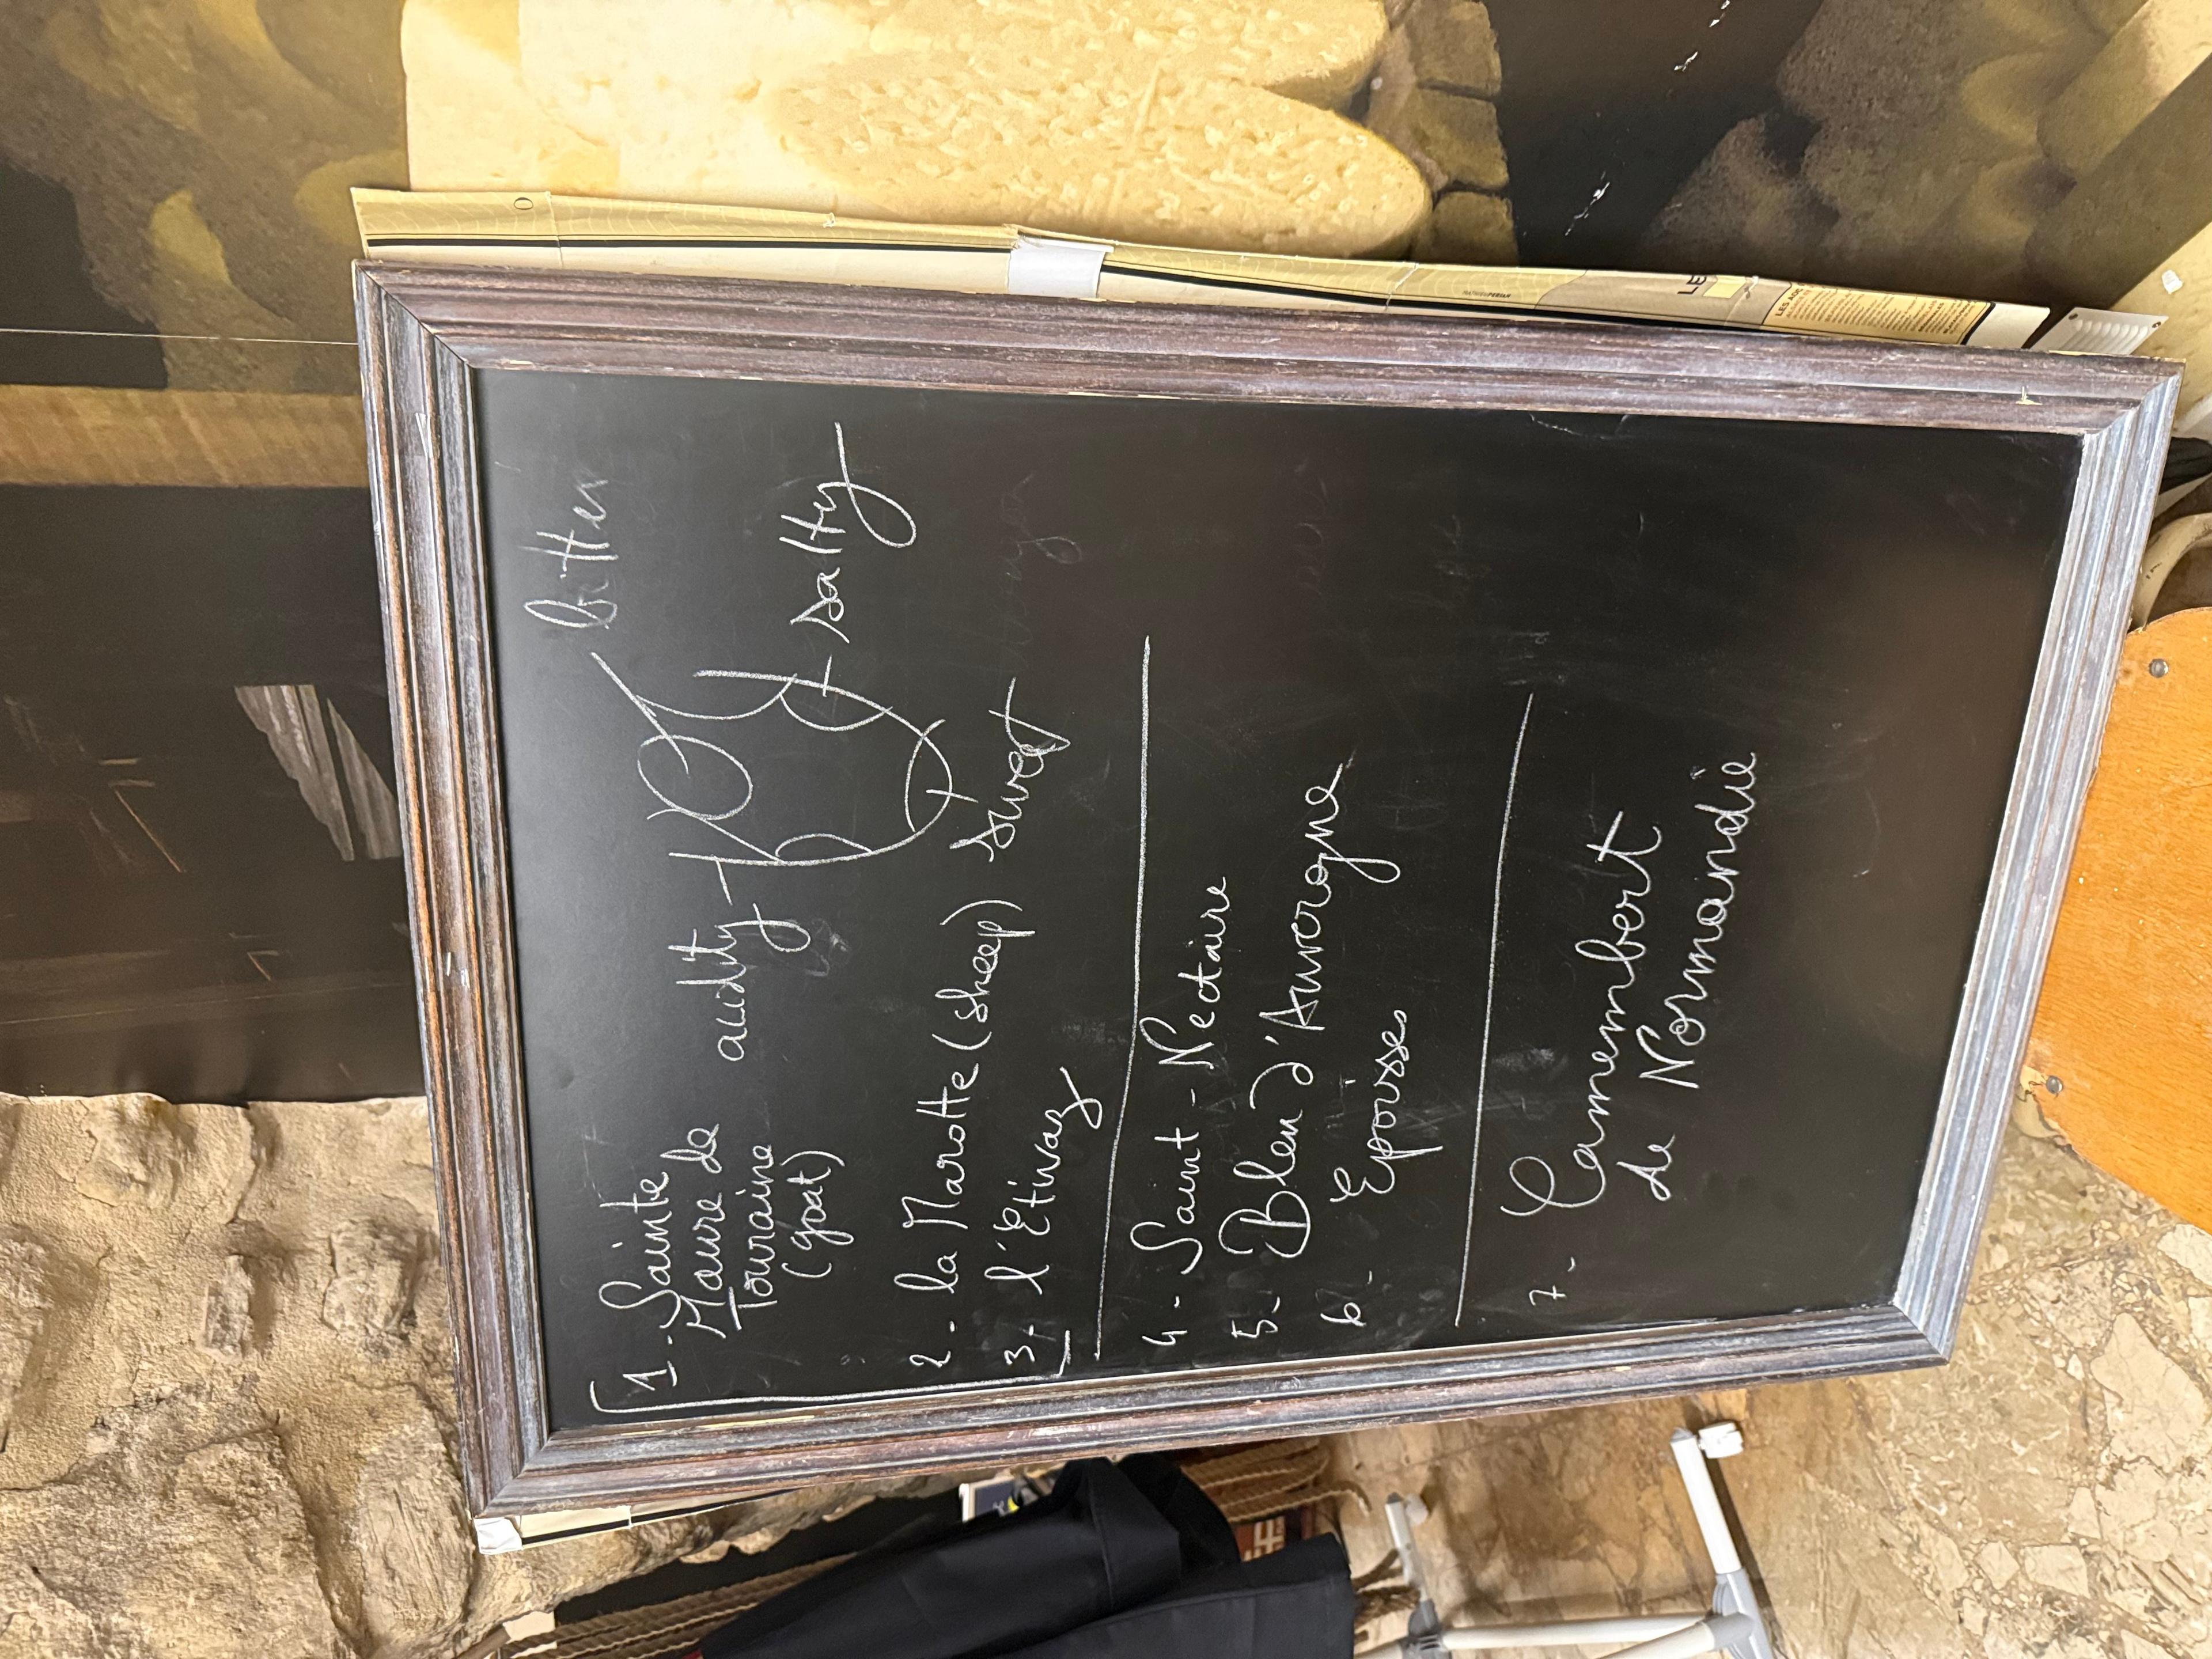 bitter
1 - Sainte
Maure de
Touraine
(goat)
acidity
salty
2 - la Marotte (sheep)
sweet
3 - l'Etivaz
4 - Saint - Nectaire
5 - Bleu d'Auvergne
6 - Epoisses
7 - Camembert
de Normandie